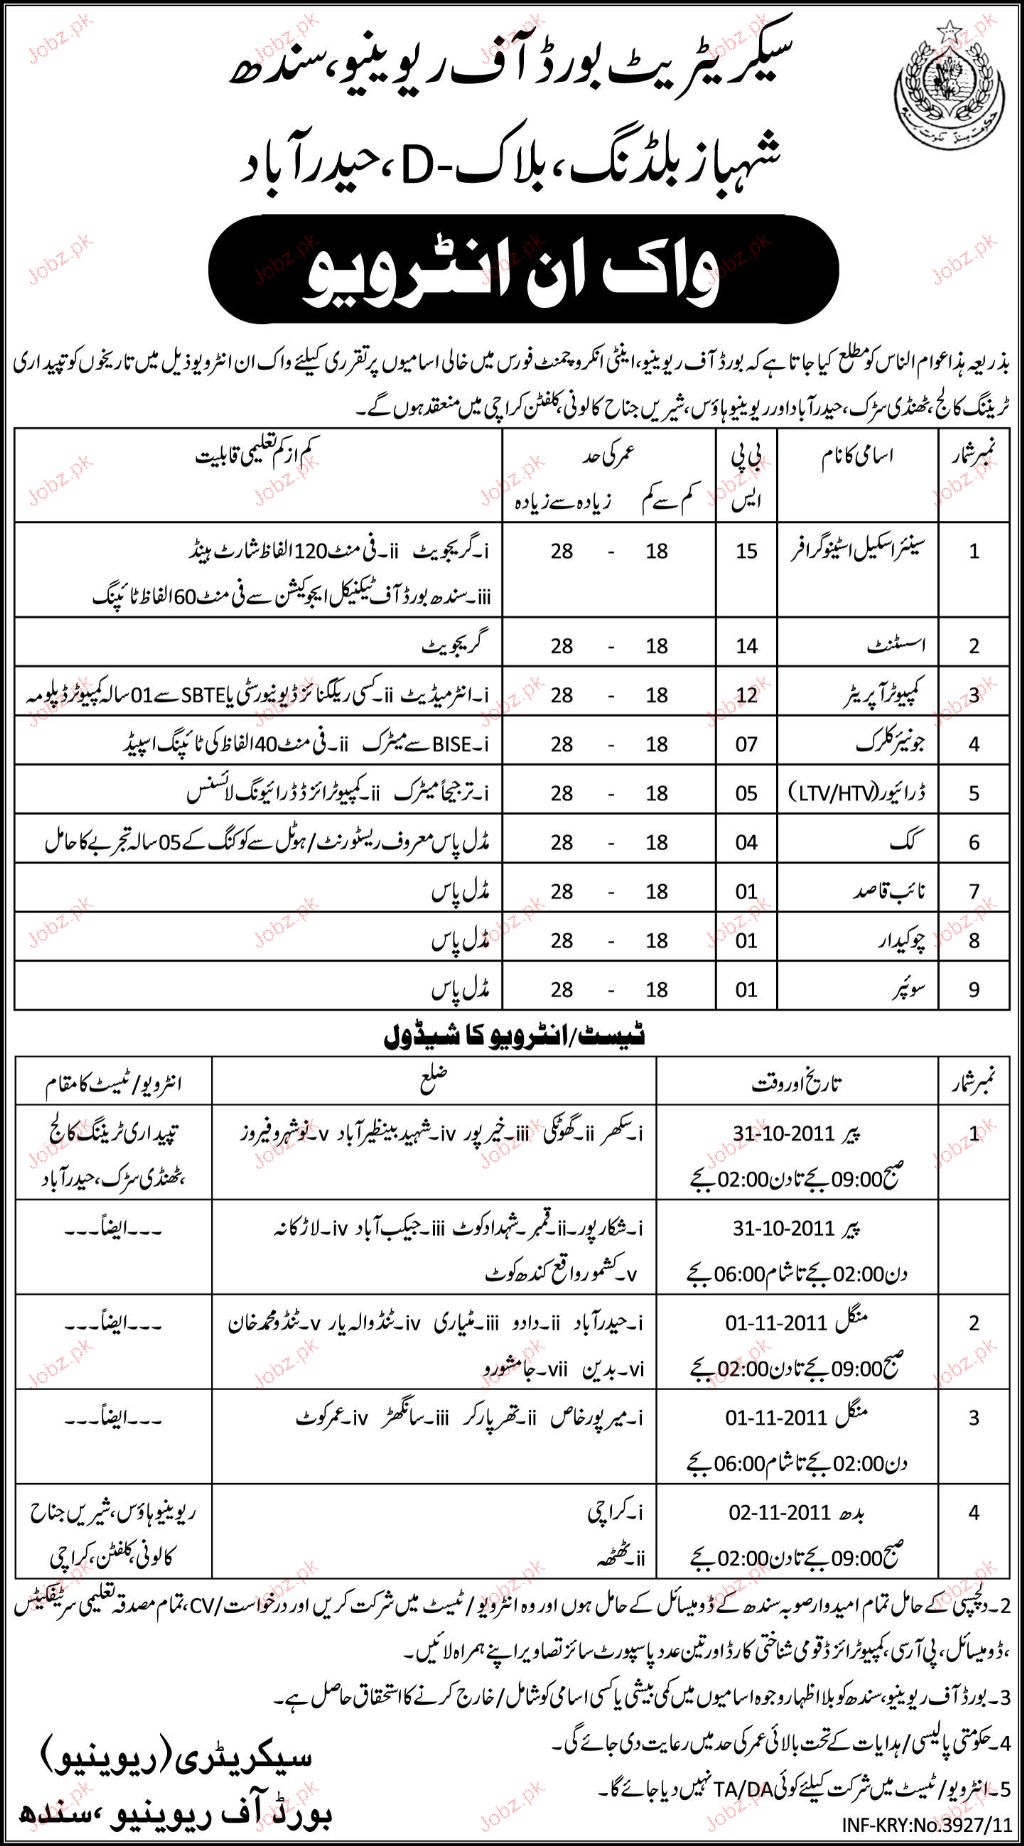 سیکریٹریٹ بورڈ آف ریوینیو، سندھ
شہباز بلڈنگ، بلاک-D، حیدرآباد
واک ان انٹرویو
بذریعہ ہذا عوام الناس کو مطلع کیا جاتا ہے کہ بورڈ آف ریوینیو، اینٹی انکروچمنٹ فورس میں خالی اسامیوں پر تقرری کیلئے واک ان انٹرویو ذیل میں تاریخوں کو تپیداری
ٹریننگ کالج، ٹھنڈی سڑک، حیدرآباد اور ریوینیو ہاؤس، شیریں جناح کالونی، کلفٹن کراچی میں منعقد ہوں گے۔
نمبر شمار اسامی کا نام بی پی ایس عمر کی حد کم سے کم زیادہ سے زیادہ کم از کم تعلیمی قابلیت
1 سینئر اسکیل اسٹینوگرافر 15 18 - 28 i۔گریجویٹ ii۔فی منٹ 120 الفاظ شارٹ ہینڈ
iii۔سندھ بورڈ آف ٹیکنیکل ایجوکیشن سے فی منٹ 60 الفاظ ٹائپنگ
2 اسسٹنٹ 14 18 - 28 گریجویٹ
3 کمپیوٹر آپریٹر 12 18 - 28 i۔انٹرمیڈیٹ ii۔کسی ریکگنائزڈ یونیورسٹی یا SBTE سے 01 سالہ کمپیوٹر ڈپلومہ
4 جونیئر کلرک 07 18 - 28 i۔BISE سے میٹرک ii۔فی منٹ 40 الفاظ کی ٹائپنگ اسپیڈ
5 ڈرائیور (LTV/HTV) 05 18 - 28 i۔ترجیحاً میٹرک ii۔کمپیوٹرائزڈ ڈرائیونگ لائسنس
6 کک 04 18 - 28 مڈل پاس معروف ریسٹورنٹ/ہوٹل سے کوکنگ کے 05 سالہ تجربے کا حامل
7 نائب قاصد 01 18 - 28 مڈل پاس
8 چوکیدار 01 18 - 28 مڈل پاس
9 سوئپر 01 18 - 28 مڈل پاس
ٹیسٹ/انٹرویو کا شیڈول
نمبر شمار تاریخ اور وقت ضلع انٹرویو/ٹیسٹ کا مقام
1 پیر 31-10-2011 i۔سکھر ii۔گھوٹکی iii۔خیرپور iv۔شہید بینظیرآباد v۔نوشہروفیروز تپیداری ٹریننگ کالج
صبح 09:00 بجے تا دن 02:00 بجے ،ٹھنڈی سڑک، حیدرآباد
پیر 31-10-2011 i۔شکارپور۔ii۔قمبر۔شہدادکوٹ iii۔جیکب آباد iv۔لاڑکانہ ---ایضاً---
دن 02:00 بجے تا شام 06:00 بجے v۔کشمور واقع کندھ کوٹ
2 منگل 01-11-2011 i۔حیدرآباد ii۔دادو iii۔مٹیاری iv۔ٹنڈوالہ یار v۔ٹنڈو محمد خان ---ایضاً---
صبح 09:00 بجے تا دن 02:00 بجے vi۔بدین vii۔جامشورو
3 منگل 01-11-2011 i۔میرپورخاص ii۔تھرپارکر iii۔سانگھڑ iv۔عمرکوٹ ---ایضاً---
دن 02:00 بجے تا شام 06:00 بجے
4 بدھ 02-11-2011 i۔کراچی ریوینیو ہاؤس، شیریں جناح
صبح 09:00 بجے تا دن 02:00 بجے ii۔ٹھٹھہ کالونی، کلفٹن، کراچی
2۔دلچسپی کے حامل تمام امیدوار صوبہ سندھ کے ڈومیسائل کے حامل ہوں اور وہ انٹرویو/ٹیسٹ میں شرکت کریں اور درخواست/CV، تمام مصدقہ تعلیمی سرٹیفکیٹس
،ڈومیسائل، پی آر سی، کمپیوٹرائزڈ قومی شناختی کارڈ اور تین عدد پاسپورٹ سائز تصاویر اپنے ہمراہ لائیں۔
3۔بورڈ آف ریوینیو، سندھ کو بلا اظہار وجوہ اسامیوں میں کمی بیشی یا کسی اسامی کو شامل/خارج کرنے کا استحقاق حاصل ہے۔
4۔حکومتی پالیسی/ہدایات کے تحت بالائی عمر کی حد میں رعایت دی جائے گی۔
5۔انٹرویو/ٹیسٹ میں شرکت کیلئے کوئی TA/DA نہیں دیا جائے گا۔
سیکریٹری (ریوینیو)
بورڈ آف ریوینیو، سندھ
INF-KRY:No.3927/11
Jobz.pk